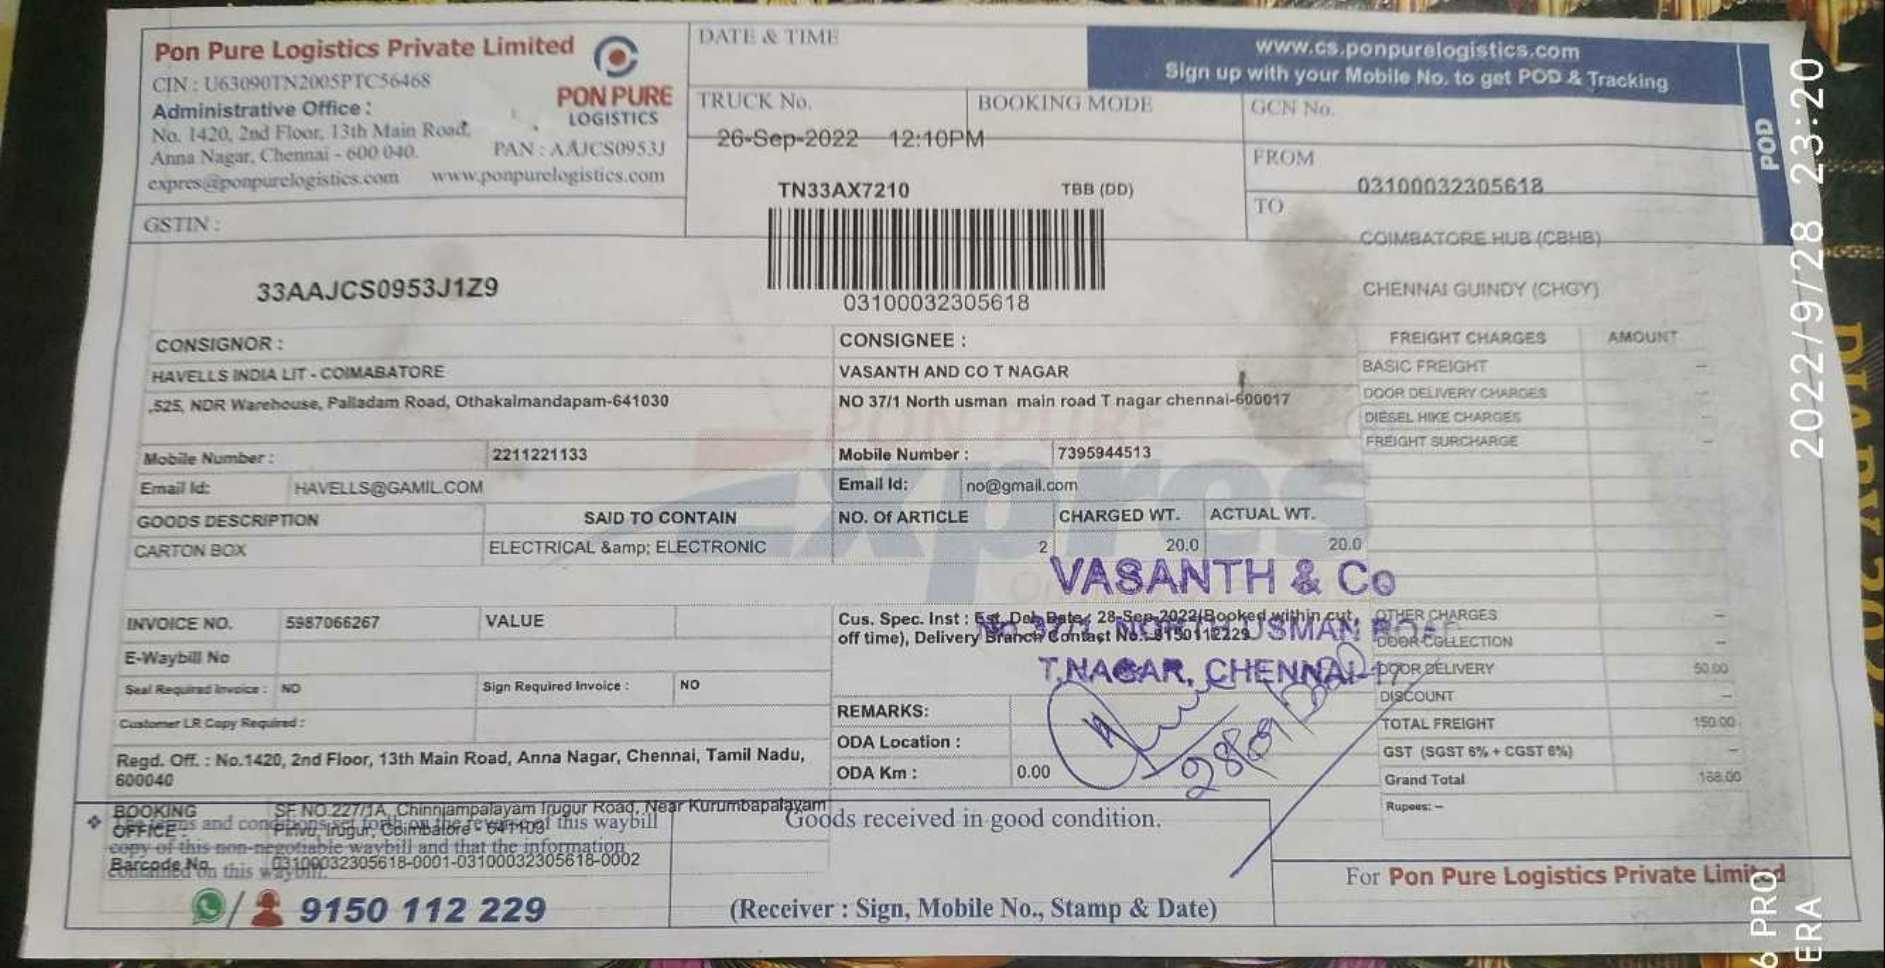 Pon Pure Logistics Private Limited
CIN : U63090TN2005PTC56468
Administrative Office :
No. 1420, 2nd Floor, 13th Main Road,
Anna Nagar, Chennai - 600 040.
PAN : AAJCS0953J
expres@ponpurelogistics.com www.ponpurelogistics.com
PON PURE
LOGISTICS
GSTIN :
33AAJCS0953J1Z9
DATE & TIME
TRUCK No. BOOKING MODE
26-Sep-2022 12:10PM
TN33AX7210 TBB (DD)
03100032305618
www.cs.ponpurelogistics.com
Sign up with your Mobile No. to get POD & Tracking
GCN No.
FROM
03100032305618
TO
COIMBATORE HUB (CBHB)
CHENNAI GUINDY (CHGY)
POD
CONSIGNOR :
HAVELLS INDIA LIT - COIMABATORE
,525, NDR Warehouse, Palladam Road, Othakalmandapam-641030
Mobile Number : 2211221133
Email Id: HAVELLS@GAMIL.COM
CONSIGNEE :
VASANTH AND CO T NAGAR
NO 37/1 North usman main road T nagar chennai-600017
Mobile Number : 7395944513
Email Id: no@gmail.com
PON PURE
Expres
GOODS DESCRIPTION SAID TO CONTAIN NO. Of ARTICLE CHARGED WT. ACTUAL WT.
CARTON BOX ELECTRICAL &amp; ELECTRONIC 2 20.0 20.0
FREIGHT CHARGES AMOUNT
BASIC FREIGHT –
DOOR DELIVERY CHARGES –
DIESEL HIKE CHARGES –
FREIGHT SURCHARGE –
OTHER CHARGES –
DOOR COLLECTION –
DOOR DELIVERY 50.00
DISCOUNT –
TOTAL FREIGHT 150.00
GST (SGST 6% + CGST 6%) –
Grand Total 168.00
Rupees: –
INVOICE NO. 5987066267 VALUE
E-Waybill No
Seal Required Invoice : NO Sign Required Invoice : NO
Customer LR Copy Required :
Regd. Off. : No.1420, 2nd Floor, 13th Main Road, Anna Nagar, Chennai, Tamil Nadu,
600040
Cus. Spec. Inst : Est. Deb Date : 28-Sep-2022(Booked within cut
off time), Delivery Branch Contact No.: 9150112229
VASANTH & Co
USMAN ROAD
T.NAGAR, CHENNAI
REMARKS:
ODA Location :
ODA Km : 0.00
BOOKING
OFFICE :
SF NO.227/1A, Chinniampalayam Irugur Road, Near Kurumbapalayam
Pirivu, Irugur, Coimbatore - 641103
terms and conditions set forth on the reverse of this waybill
copy of this non-negotiable waybill and that the information
contained on this waybill.
Barcode No. 03100032305618-0001-03100032305618-0002
9150 112 229
Goods received in good condition.
(Receiver : Sign, Mobile No., Stamp & Date)
For Pon Pure Logistics Private Limited
2022/9/28 23:20
6 PRO
ERA